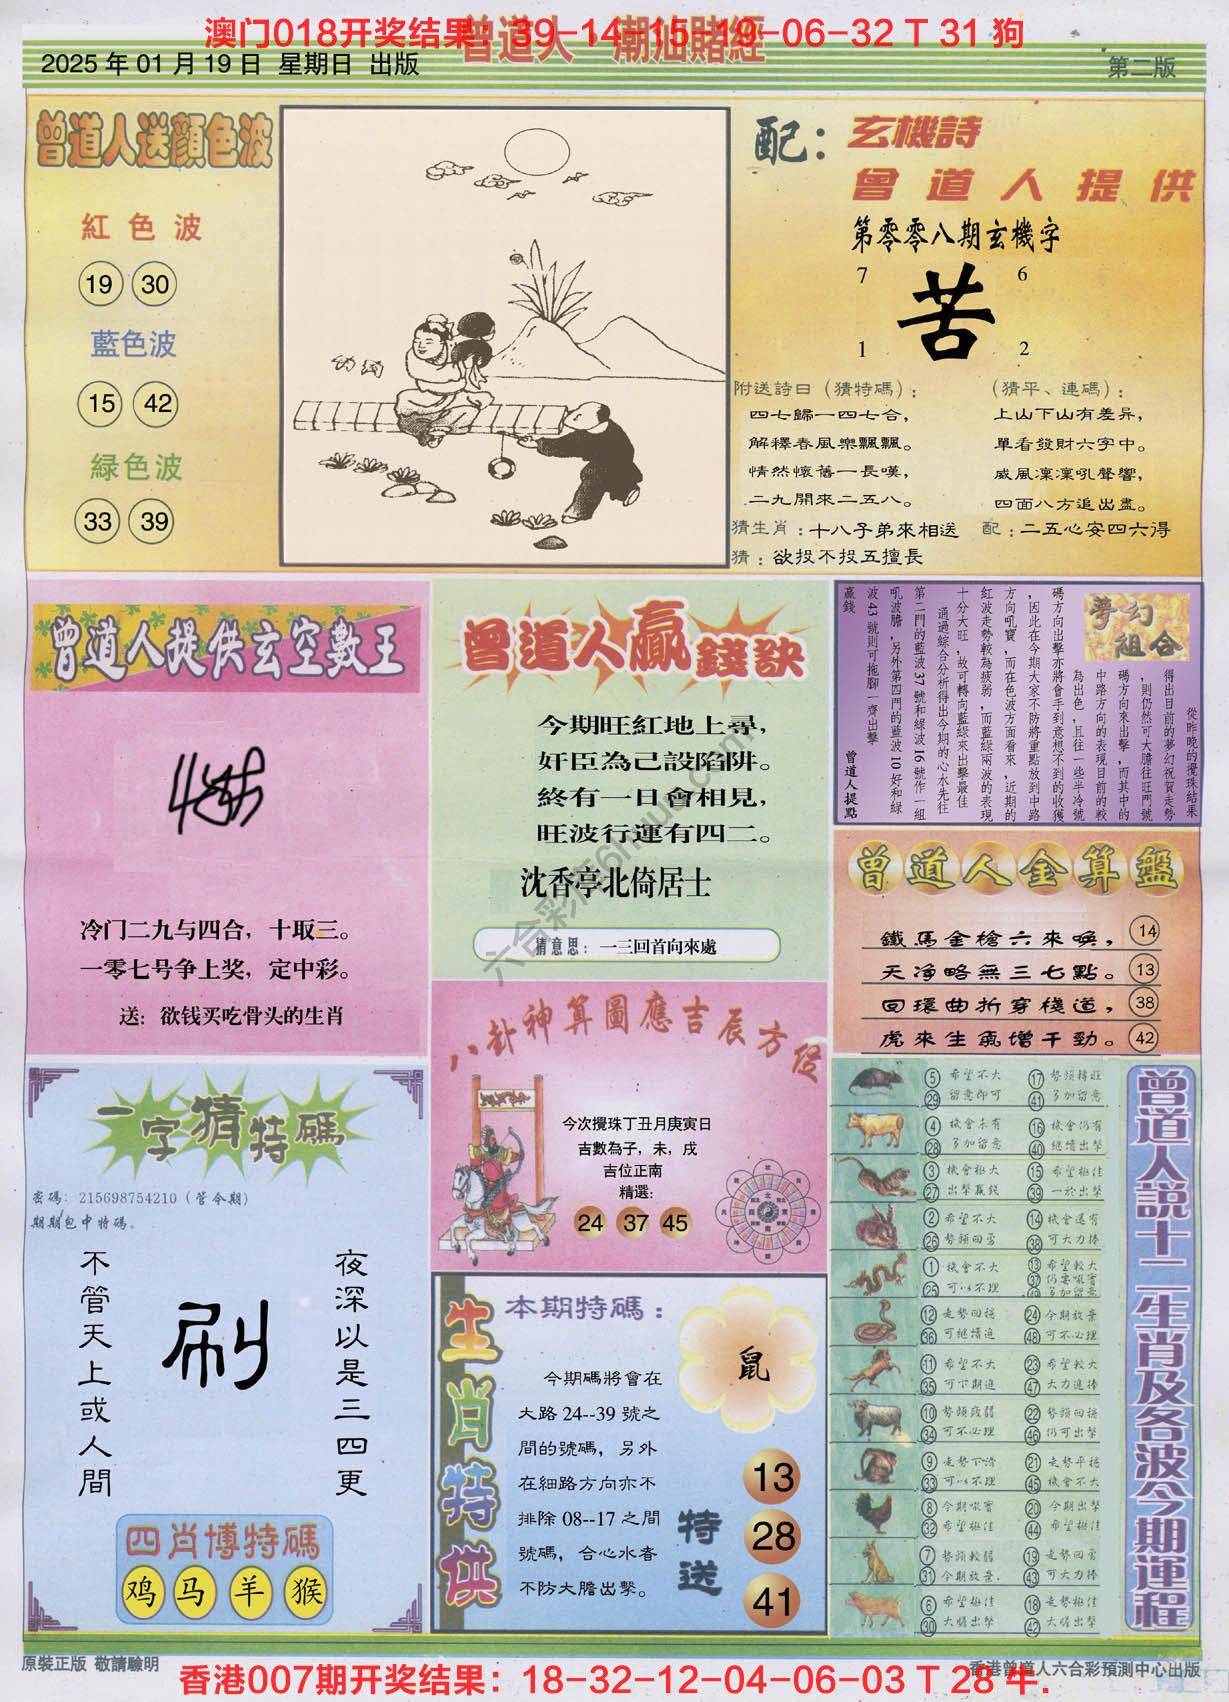 澳门018开奖结果：39-14-15-19-06-32 T 31 狗
曾道人 潮汕賭經
2025 年 01 月 19 日 星期日 出版
第二版
曾道人送顏色波
紅色波
19 30
藍色波
15 42
綠色波
33 39
配：玄機詩
曾道人提供
第零零八期玄機字
7 6
苦
1 2
附送詩曰（猜特碼）：
四七歸一四七合，
解釋春風樂飄飄。
情然懷舊一長嘆，
二九開來二五八。
（猜平、連碼）：
上山下山有差异，
單看發財六字中。
威風凜凜吼聲響，
四面八方追出盡。
猜生肖：十八子弟來相送 配：二五心安四六得
猜：欲投不投五擅長
曾道人提供玄空數王
冷门二九与四合，十取三。
一零七号争上奖，定中彩。
送：欲钱买吃骨头的生肖
曾道人贏錢訣
今期旺紅地上尋，
奸臣為己設陷阱。
終有一日會相見，
旺波行運有四二。
沈香亭北倚居士
猜意思：一三回首向來處
夢幻組合
從昨晚的攪珠結果
得出目前的夢幻祝賀走勢
，則仍然可大膽往旺門號
碼方向來出擊，而其中的
中路方向的表現目前的較
為出色，且往一些半冷號
碼方向出擊亦將會手到意想不到的收獲
，因此在今期大家不防將重點放到中路
方向吼寶，而在色波方面看來，近期的
紅波走勢較為疲弱，而藍綠兩波的表現
十分大旺，故可轉向藍綠來出擊最佳
通過綜合分析得出今期的心水先往
第二門的藍波37號和綠波16號作一組
吼波膽，另外第四門的藍波10好和綠
波43號則可拖腳一齊出擊
贏錢
曾道人提點
曾道人金算盤
鐵馬金槍六來喚， 14
天淨略無三七點。 13
回環曲折穿棧道， 38
虎來生氣增干勁。 42
八卦神算圖應吉辰方位
今次攪珠丁丑月庚寅日
吉數為子，未，戌
吉位正南
精選：
24 37 45
一字猜特碼
密碼：215698754210（管今期）
期期包中特碼。
夜深以是三四更
刷
不管天上或人間
四肖博特碼
鸡 马 羊 猴
生肖特供
本期特碼：
鼠
今期碼將會在
大路 24--39 號之
間的號碼，另外
在細路方向亦不
排除 08--17 之間
號碼，合心水者
不防大膽出擊。
特送
13
28
41
曾道人説十二生肖及各波今期運程
5 希望不大 17 勢頭轉旺
29 留意即可 41 多加留意
4 機會未有 16 機會仍有
28 多加留意 40 繼續出擊
3 機會極大 15 希望極佳
27 出擊贏錢 39 一於出擊
2 希望不大 14 機會還有
26 勢頭回勇 38 可大力捧
1 機會不大 13 希望較大
25 可以不理 37 仍要吼實
多加留意
12 走勢回穩 24 今期放棄
36 可繼續追 48 可不必理
11 希望不大 23 希望較大
35 可下期追 47 大力追捧
10 勢頭疲弱 22 勢頭回穩
34 可不必理 46 仍可出擊
9 走勢下滑 21 走勢平穩
33 可以不理 45 機會不大
8 今期吼實 20 今期出擊
32 希望極佳 44 希望極佳
7 勢頭較弱 19 走勢回勇
31 今期放棄. 43 可大力捧
6 希望極佳 18 走勢極佳
30 大膽出擊 42 大膽出擊
原裝正版 敬請驗明
香港曾道人六合彩預測中心出版
香港007期开奖结果：18-32-12-04-06-03 T 28 牛.